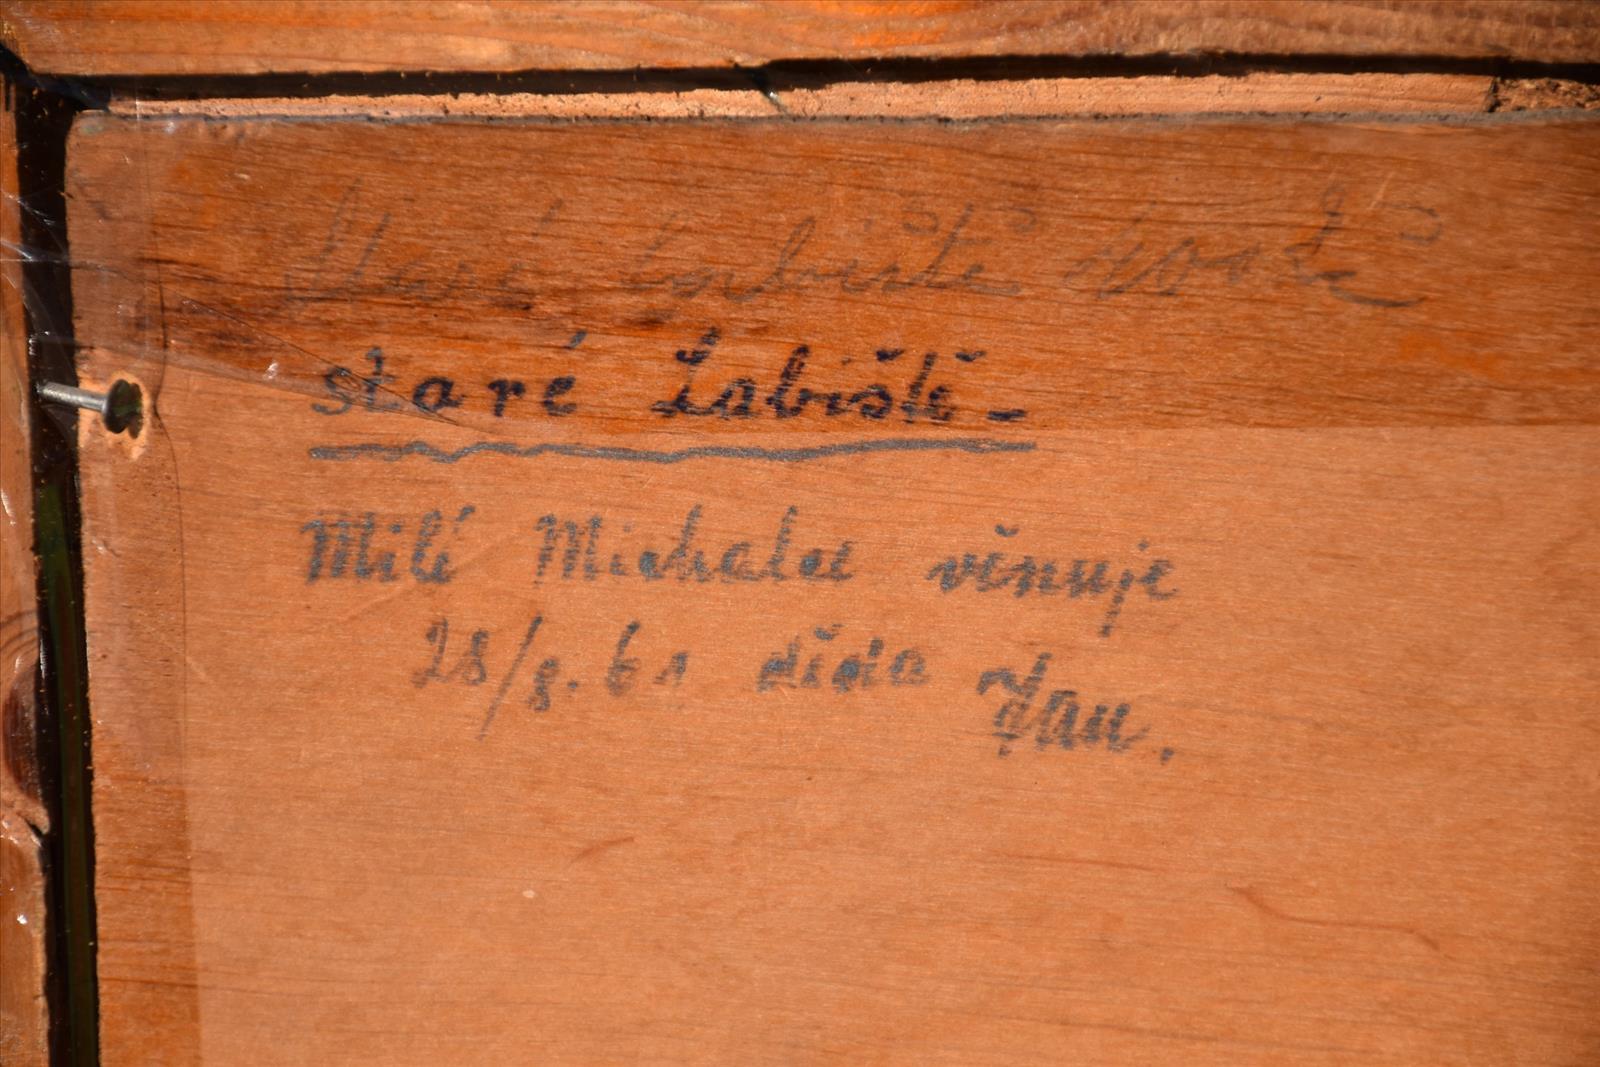 Staré Labiště
staré Labiště -
Milé Michalce věnuje
28/8. 61 děda Jan.